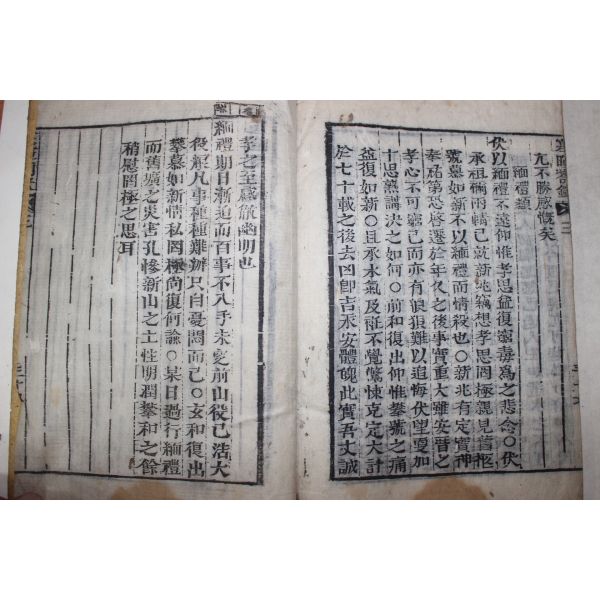 尤不勝感慨矣
緬禮類
伏以緬禮不遠仰惟孝思益復罔毒爲之悲念○伏
承祖禰兩幀已就新兆竊想孝思罔極親見舊柩
號慕如新不以緬禮而情殺也○新兆有定實神
奉祐第恐啓遷於年久之後事實重大雖安厝之
孝心不可忽已而亦有狼狽難以追悔伏望更加
十思熟講決之如何○前和復出仰惟攀號之痛
益復如新○且承水氣及誑不覺驚悚克定大計
於七十載之後去凶即吉永安體魄此實吾丈誠
孝之至感徹幽明也
答
緬禮期日漸迫而百事不入手未發前山役已浩大
役糧凡事種種難辦只自憂悶而已○玄和復出
攀慕如新情私罔極尚復何諭○某日過行緬禮
而舊壙之災害孔慘新山之土性明潤攀和之餘
稍慰罔極之思耳